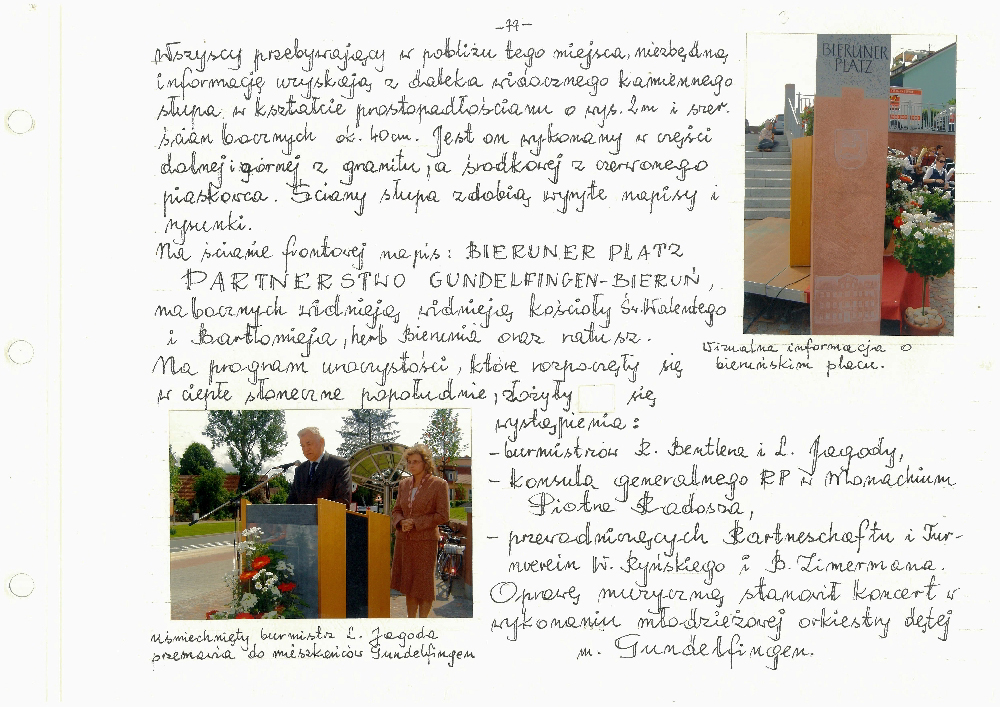 -77-
wszyscy przebywający w pobliżu tego miejsca, niezbędną
informację uzyskają z daleka widocznego kamiennego
słupa w kształcie prostopadłościanu o wys. 2m i szer.
ścian bocznych ok. 40cm. Jest on wykonany w części
dolnej i górnej z granitu, a środkowej z czerwonego
piaskowca. Ściany słupa zdobią wyryte napisy i
rysunki.
Na ścianie frontowej napis: BIERUNER PLATZ
PARTNERSTWO GUNDELFINGEN-BIERUŃ,
na bocznych widnieją widnieją kościoły Św. Walentego
i Bartłomieja, herb Bierunia oraz ratusz.
Na program uroczystości, które rozpoczęły się
w ciepłe słoneczne popołudnie, złożyły się
wystąpienia:
- burmistrzów R. Bentlera i L. Jagody,
- konsula generalnego RP w Monachium
Piotra Radosza,
- przewodniczących Partneschaftu i Tur-
nverein W. Ryńskiego i B. Zimermana.
Oprawę muzyczną stanowił koncert w
wykonaniu młodzieżowej orkiestry dętej
m. Gundelfingen.
BIERUNER
PLATZ
Wizualna informacja o
bieruńskim placu.
Uśmiechnięty burmistrz L. Jagoda
przemawia do mieszkańców Gundelfingen